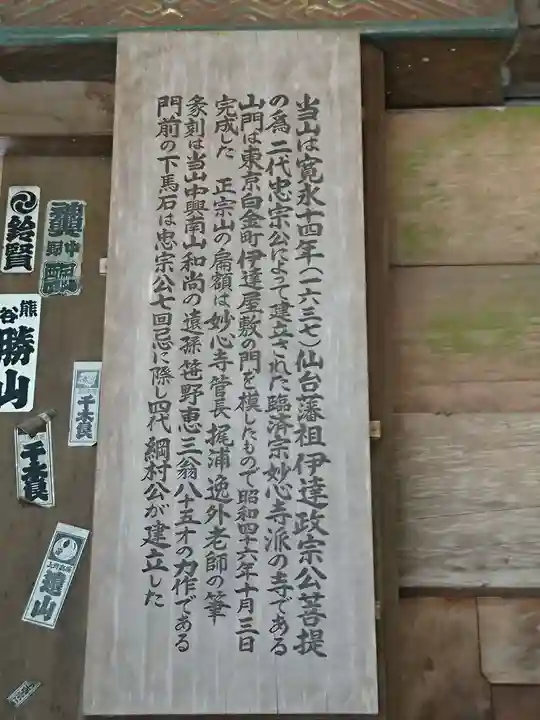 当山は寛永十四年(一六三七)仙台藩祖伊達政宗公菩提
の為 二代忠宗公によって建立された臨済宗妙心寺派の寺である
山門は東京白金町伊達屋敷の門を模したもので昭和四十六年十月三日
完成した 正宗山の扁額は妙心寺管長 梶浦逸外老師の筆
彖刻は当山中興南山和尚の遠孫笹野恵三翁八十五才の力作である
門前の下馬石は忠宗公七回忌に際し四代 綱村公が建立した
鈴賢
野中
熊谷
勝山
千社負
遠山